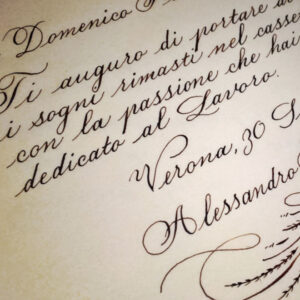 Domenico
Ti auguro di portare a
i sogni rimasti nel casse
con la passione che hai
dedicato al Lavoro.
Verona, 30 S
Alessandro